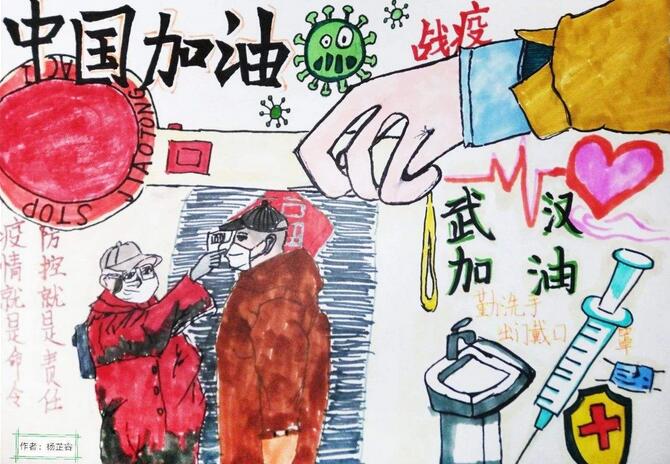 中国加油
战疫
STOP JIAOTONG
武汉
加油
勤洗手
出门戴口罩
防控就是责任
疫情就是命令
作者：杨芷